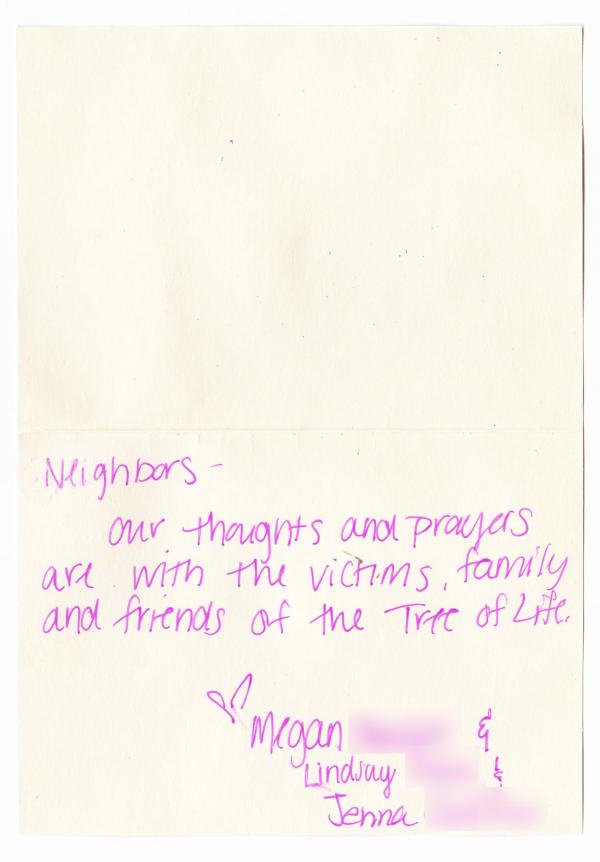 Neighbors -
our thoughts and prayers
are with the victims, family
and friends of the Tree of Life.
Megan &
Lindsay &
Jenna